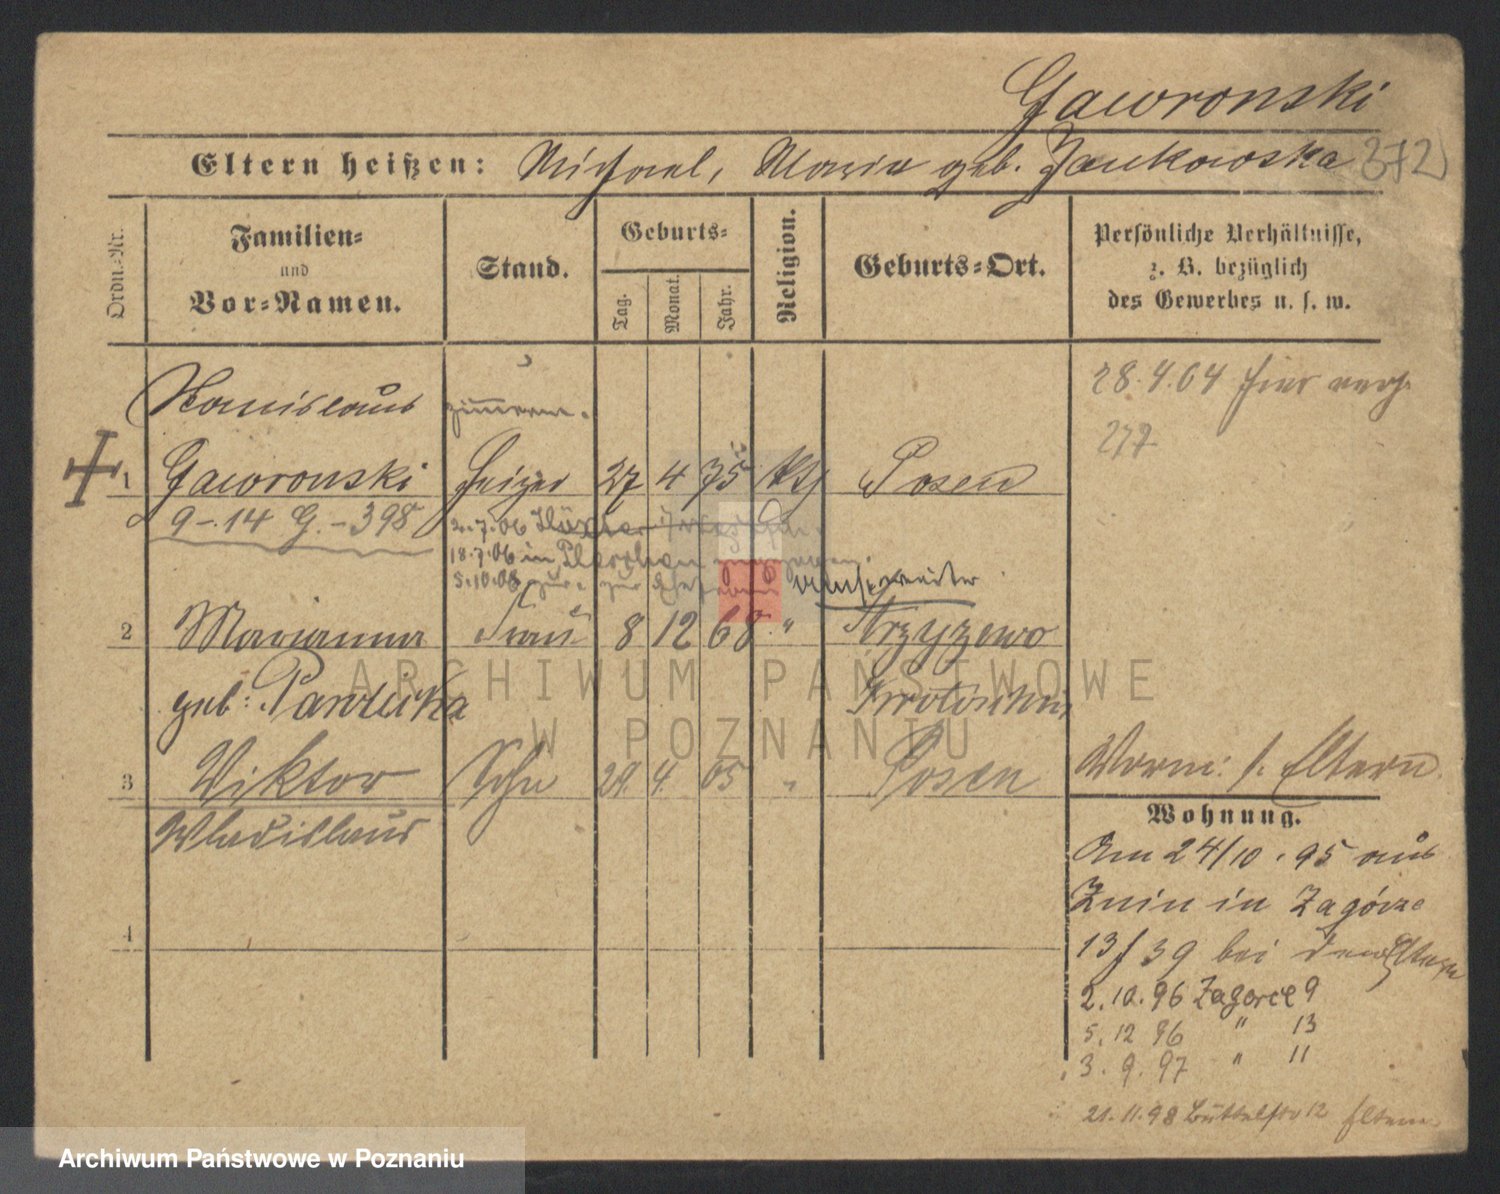 Gawronski
Eltern heißen: Michael, Maria geb. Jankowska 372
Ordn.-Nr.
Familien-
und
Vor-Namen.
Stand.
Geburts-
Tag.
Monat.
Jahr.
Religion.
Geburts-Ort.
Persönliche Verhältnisse,
z. B. bezüglich
des Gewerbes u. s. w.
Stanislaus
28.4.04 hier
277
1 Gawronski Heizer 27 4 75 kth Posen
9-.14 G.-398
2.7.06
18.7.06 in
5.10.08 zur
2 Marianna Frau 8 12 68 " Strzyzewo
geb. Pawlicka Krotoschin
3 Viktor Sohn 29. 4. 05 " Posen
Wladislaus
Vorm: s. Eltern
Wohnung.
Am 24/10.95 aus
Znin in Zagórze
13 f 39 bei den Eltern
2.10.96 Zagorce 9
5.12 96 " 13
3.9.97 " 11
21.11.98 Büttelstr 12 Eltern
4
ARCHIWUM PAŃSTWOWE
W POZNANIU
Archiwum Państwowe w Poznaniu